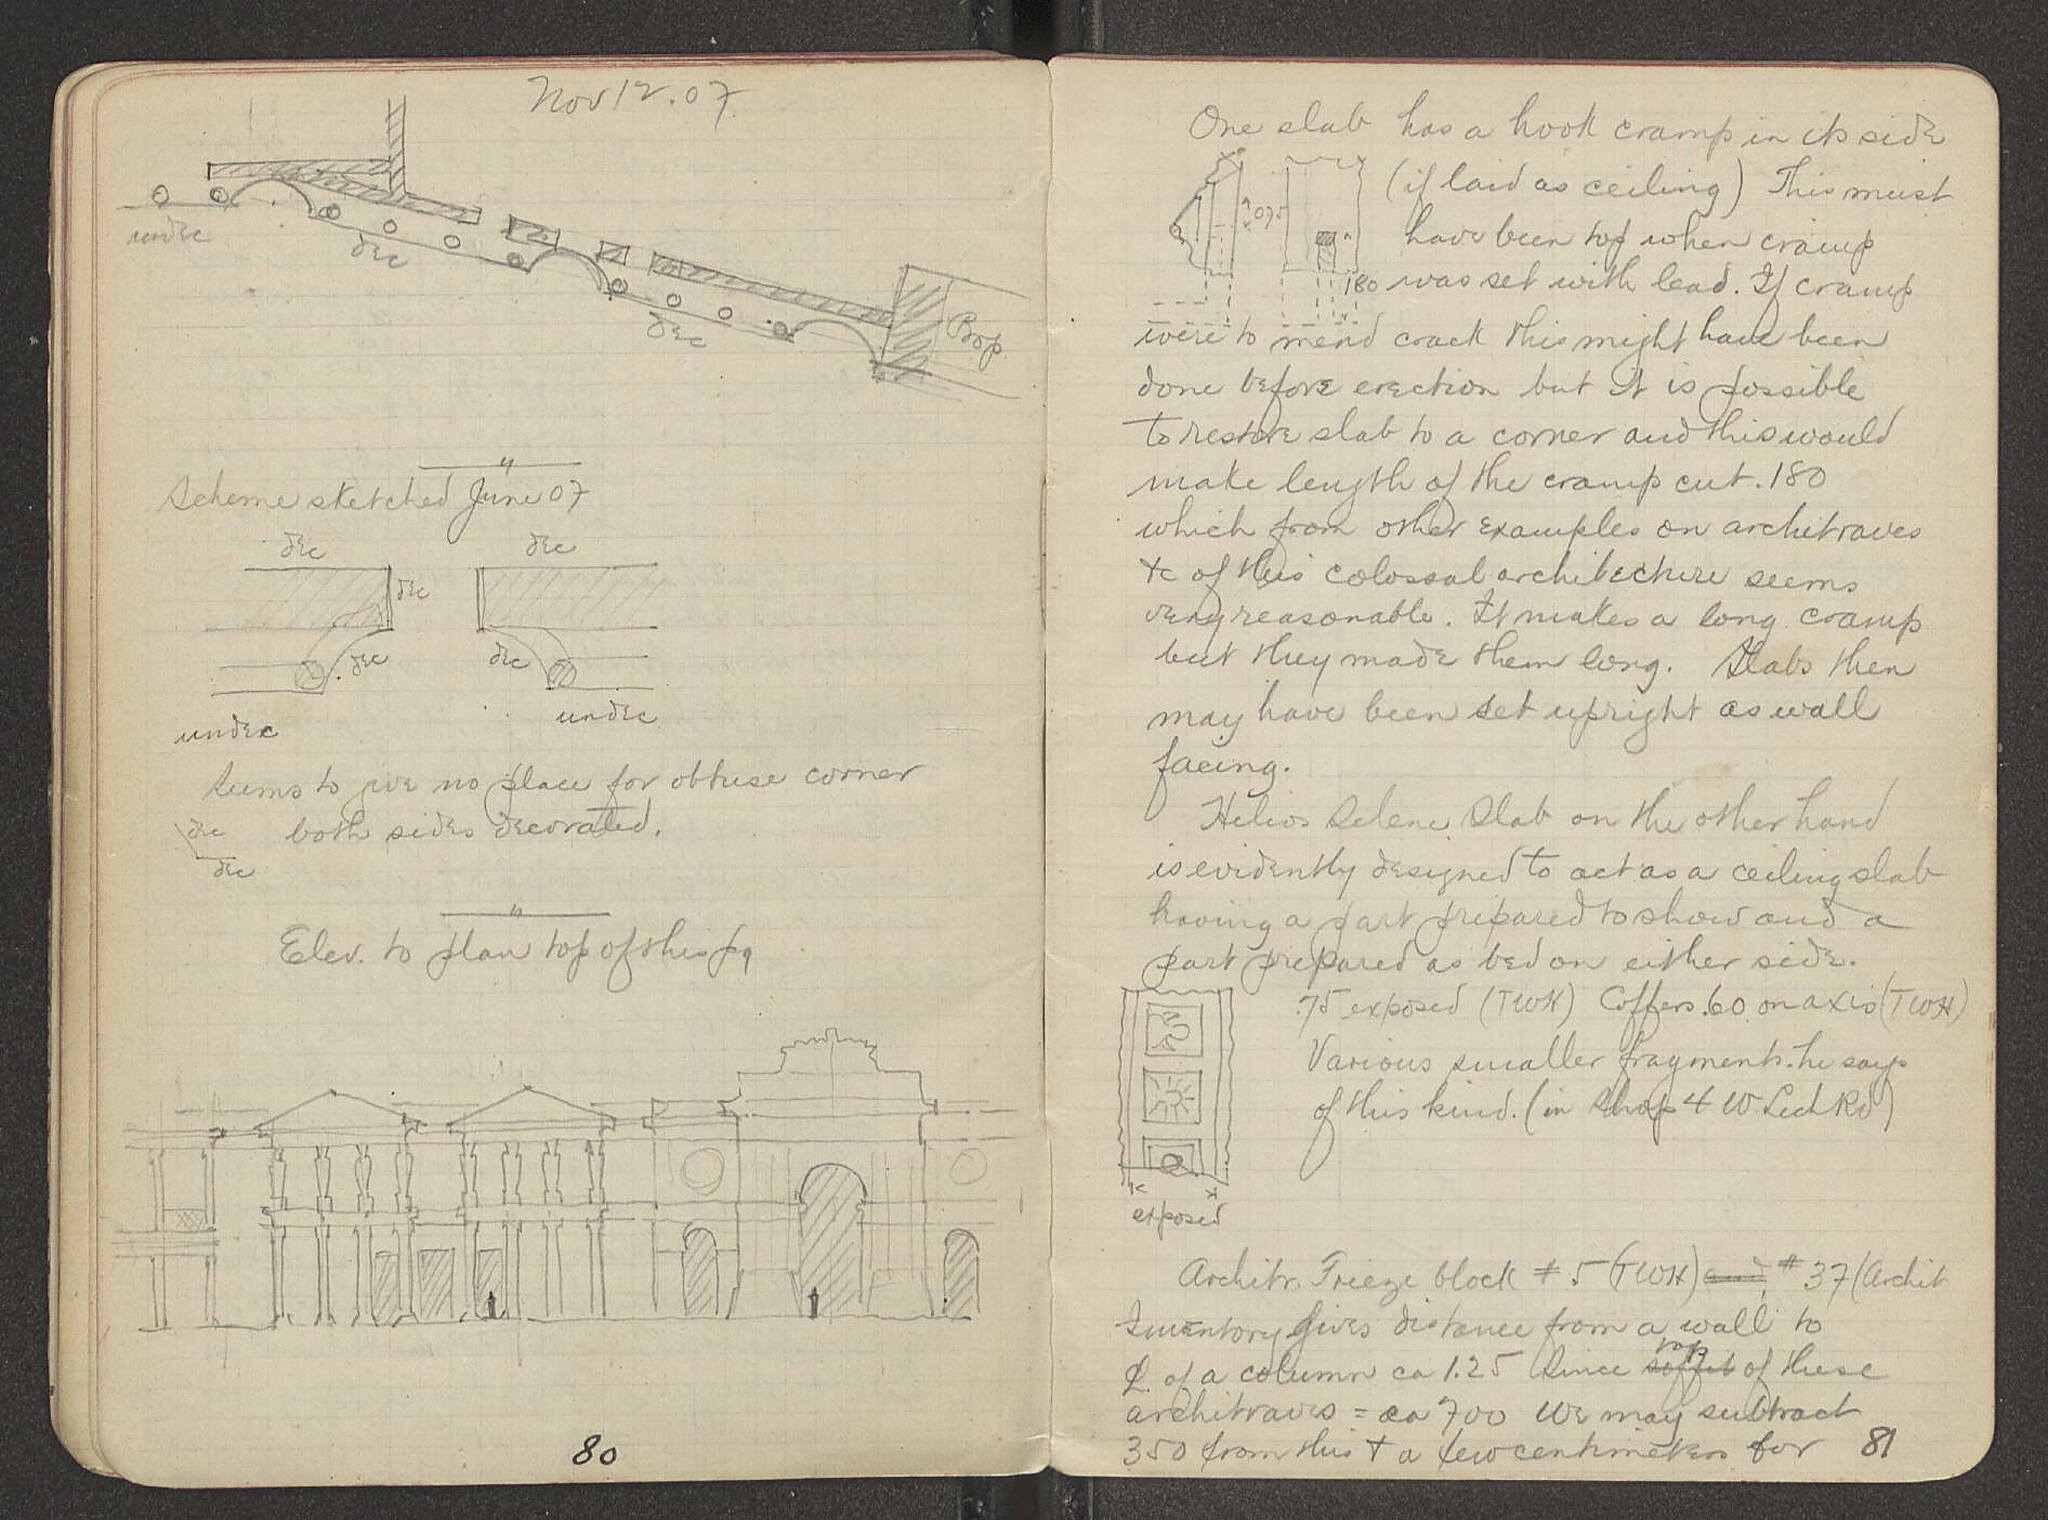 Nov 12. 07
undec
dec
dec
Prop
"
Scheme sketched June 07
dec dec
dec
dec dec
undec undec
Seems to give no place for obtuse corner
dec both sides decorated.
dec
"
Elev. to plan top of this pg
80
One slab has a hook cramp in its side
(if laid as ceiling) This must
.075
have been top when cramp
180 was set with lead. If cramp
were to mend crack this might have been
done before erection but it is possible
to restore slab to a corner and this would
make length of the cramp cut .180
which from other examples on architraves
&c of this colossal architecture seems
very reasonable. It makes a long cramp
but they made them long. Slabs then
may have been set upright as wall
facing.
Helios Selene Slab on the other hand
is evidently designed to act as a ceiling slab
having a part prepared to show and a
part prepared as bed on either side.
.75 exposed (TWH) Coffers .60 on axis (TWH)
Various smaller fragments he says
of this kind. (in Shop 4 W. Lech Rd)
exposed
Architr. Frieze block # 5 (TWH) and # 37 (Archit
Inventory gives distance from a wall to
℄ of a column ca 1.25 Since soffit top of these
architraves = ca 700 We may subtract
350 from this + a few centimeters for
81